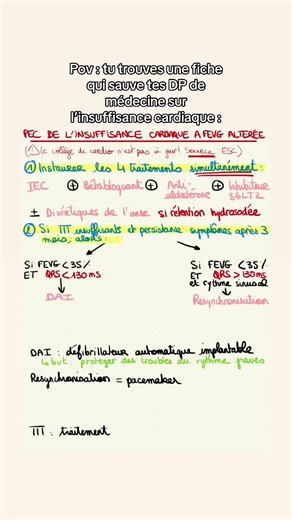 Pov : tu trouves une fiche
qui sauve tes DP de
médecine sur
l'insuffisance cardiaque :
PEC DE L'INSUFFISANCE CARDIAQUE A FEVG ALTEREE
(⚠ Le collège de cardio n'est pas à jour! Source ESC)
① Instaurer les 4 traitements simultanément :
IEC ⊕ Bétabloquant ⊕ Anti-aldostérone ⊕ Inhibiteur SGLT2
± Diurétiques de l'anse si rétention hydrosodée
② Si TTT insuffisants et persistance symptômes après 3
mois, alors :
Si FEVG < 35%
ET QRS < 130ms
→ DAI
Si FEVG < 35%
ET QRS > 130ms
et rythme sinusal
→ Resynchronisation
DAI : défibrillateur automatique implantable
↳ but : protéger des troubles du rythme graves
Resynchronisation = pacemaker
TTT : traitement